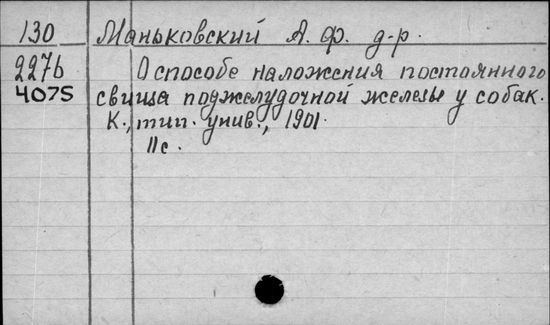 130 Маньковский А. Ф. д-р.
2276 О способе наложения постоянного
4075 свища поджелудочной железы у собак.
К., тип. унив., 1901.
11 с.